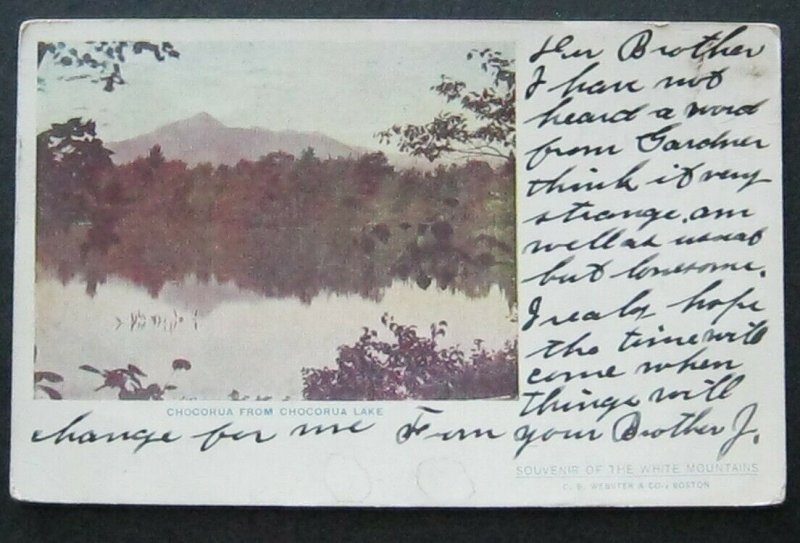 Der Brother
I have not
heard a word
from Gardner
think it very
strange. am
well as usual
but lonesome.
I realy hope
the time will
come when
things will
change for me From your Brother J.
CHOCORUA FROM CHOCORUA LAKE
SOUVENIR OF THE WHITE MOUNTAINS
C. S. WEBSTER & CO., BOSTON